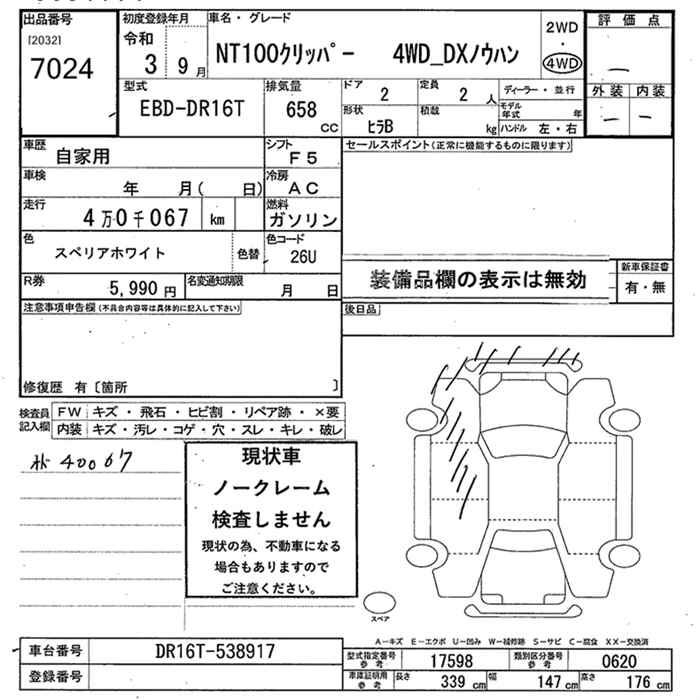 出品番号
[2032]
7024
初度登録年月
令和
3 9月
車名・グレード
NT100クリッパー 4WD_DXノウハン
2WD
・
4WD
評価点
—
外装 内装
— —
型式
EBD-DR16T
排気量
658 cc
ドア
2
定員
2 人
ディーラー・並行
形状
ヒラB
積載
kg
モデル年式 年
ハンドル 左・右
車歴
自家用
シフト
F5
セールスポイント(正常に機能するものに限ります)
車検
年 月( 日)
冷房
AC
走行
4万0千067 km
燃料
ガソリン
色
スペリアホワイト
色替
色コード
26U
R券
5,990円
名変通知期限
月 日
装備品欄の表示は無効
新車保証書
有・無
注意事項申告欄(不具合内容等は具体的に記入して下さい)
後日品
修復歴 有〔箇所 〕
検査員記入欄
FW キズ・飛石・ヒビ割・リペア跡・×要
内装 キズ・汚レ・コゲ・穴・スレ・キレ・破レ
40067
現状車
ノークレーム
検査しません
現状の為、不動車になる
場合もありますので
ご注意ください。
スペア
A-キズ E-エクボ U-凹み W-補修跡 S-サビ C-腐食 XX-交換済
車台番号
DR16T-538917
登録番号
型式指定番号参考
17598
類別区分番号参考
0620
車庫証明用参考
長さ 339cm 幅 147cm 高さ 176cm